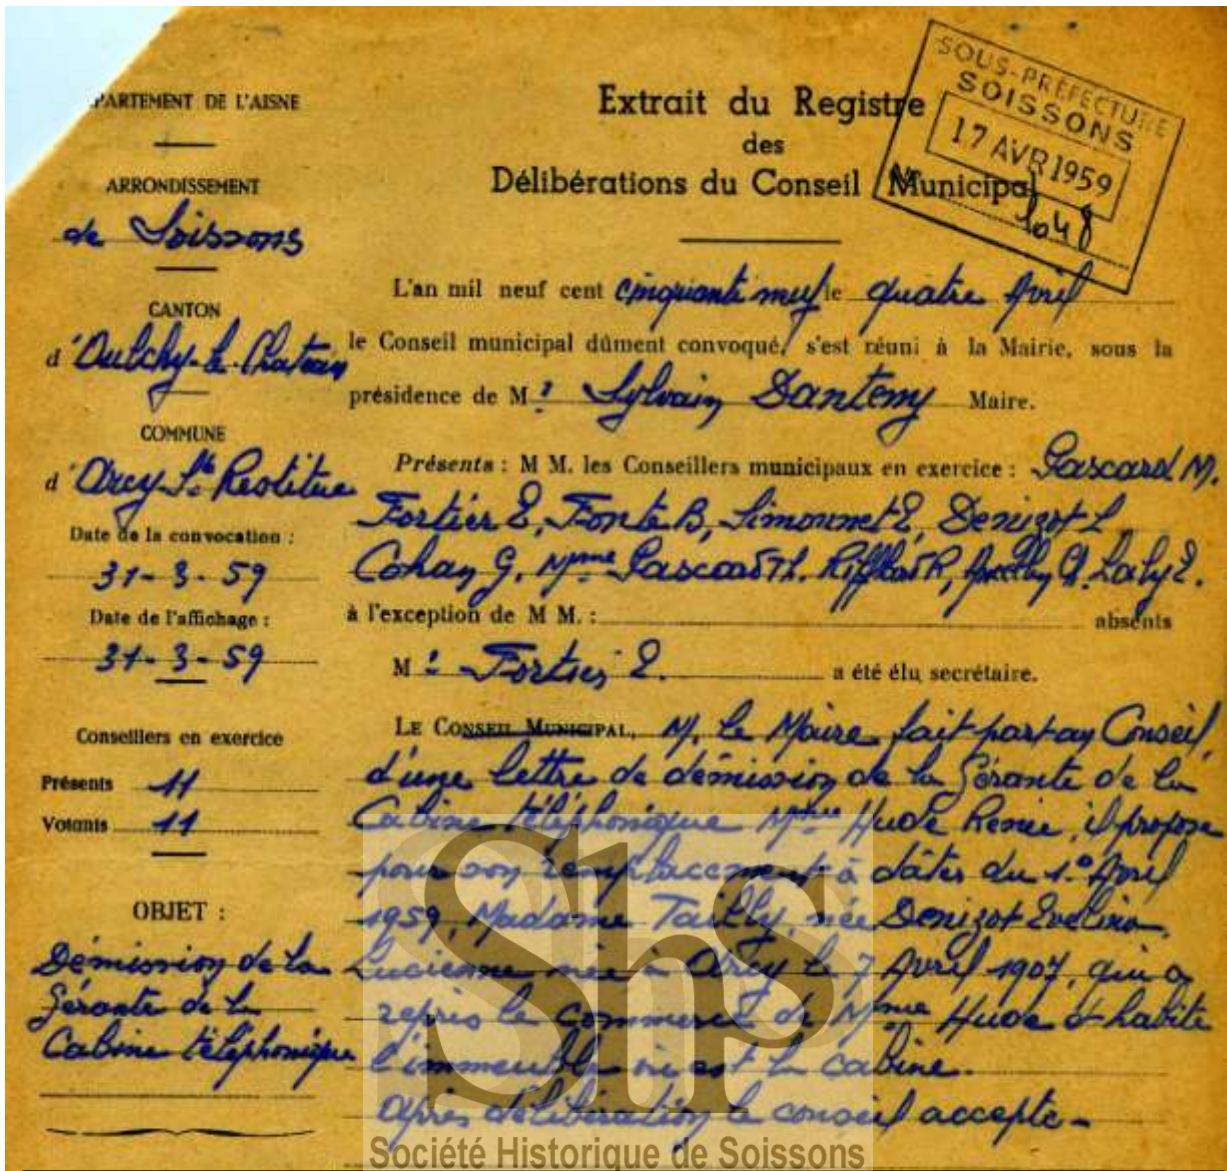 PARTEMENT DE L'AISNE
ARRONDISSEMENT
de Soissons
CANTON
d'Oulchy-le-Chateau
COMMUNE
d'Arcy Ste Restitue
Date de la convocation :
31-3-59
Date de l'affichage :
31-3-59
Conseillers en exercice
Présents 11
Votants 11
OBJET :
Démission de la
Gérante de la
Cabine téléphonique
Extrait du Registre
des
Délibérations du Conseil Municipal
SOUS-PRÉFECTURE
SOISSONS
17 AVR 1959
1048
L'an mil neuf cent cinquante neuf le quatre Avril
le Conseil municipal dûment convoqué, s'est réuni à la Mairie, sous la
présidence de Mr Sylvain Danteny Maire.
Présents : M M. les Conseillers municipaux en exercice : Gascard M.
Fortier E, Fonte B, Simonnet E, Denizot L
Cohan G, Mme Gascard Th. Riffard R, Laly E.
à l'exception de M M. : absents
Mr Fortier E. a été élu secrétaire.
LE CONSEIL MUNICIPAL, M. le Maire fait part au Conseil
d'une lettre de démission de la Gérante de la
Cabine téléphonique Mme Hude Renée, il propose
pour son remplacement à dater du 1º Avril
1959, Madame Tailly, née Denizot Evelina
Lucienne née à Arcy le 7 Avril 1907, qui a
repris le Commerce de Mme Hude & habite
l'immeuble où est la cabine.
Après délibération le conseil accepte -
Shs
Société Historique de Soissons